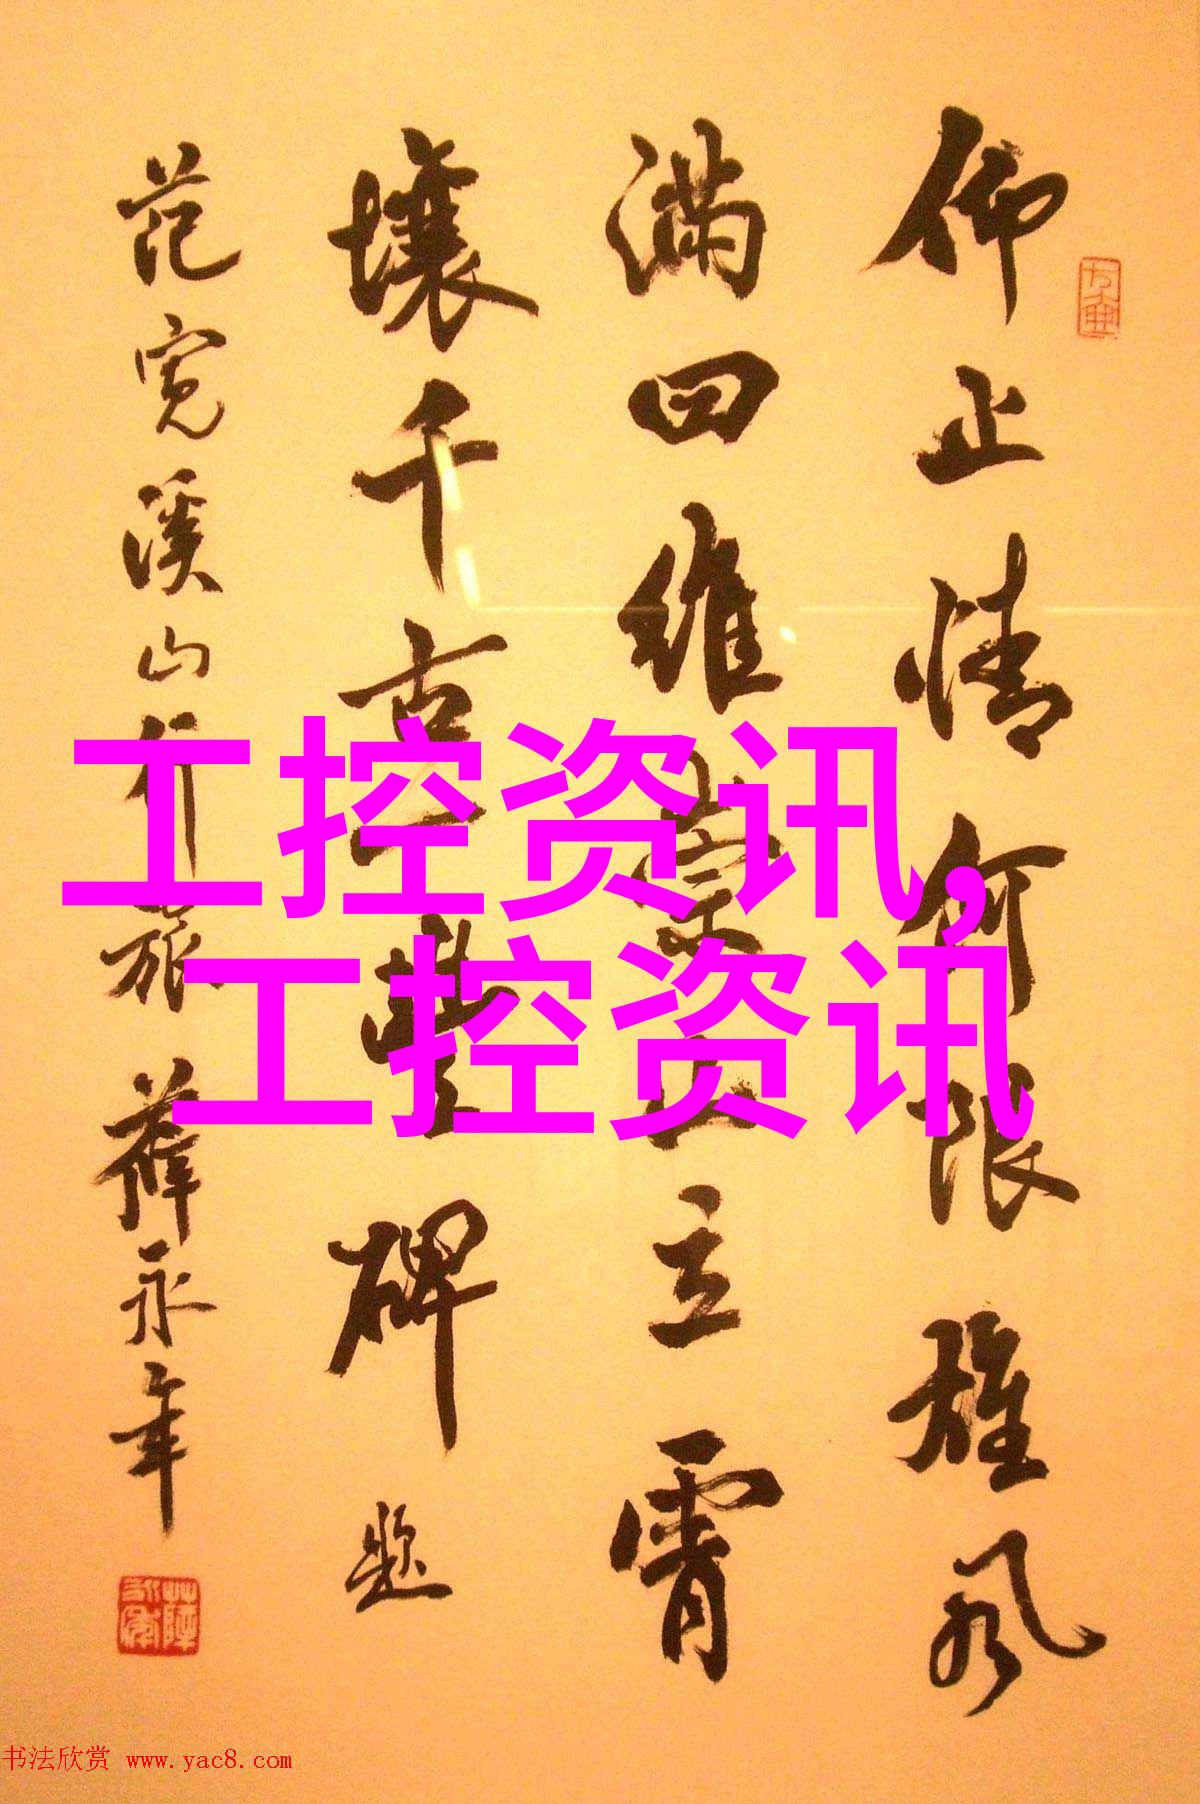 仰止情何限雄风
满四维崇山立霄
壤千古一丰碑题
范宽溪山行旅薛永年
工控资讯,
工控资讯
书法欣赏 www.yac8.com